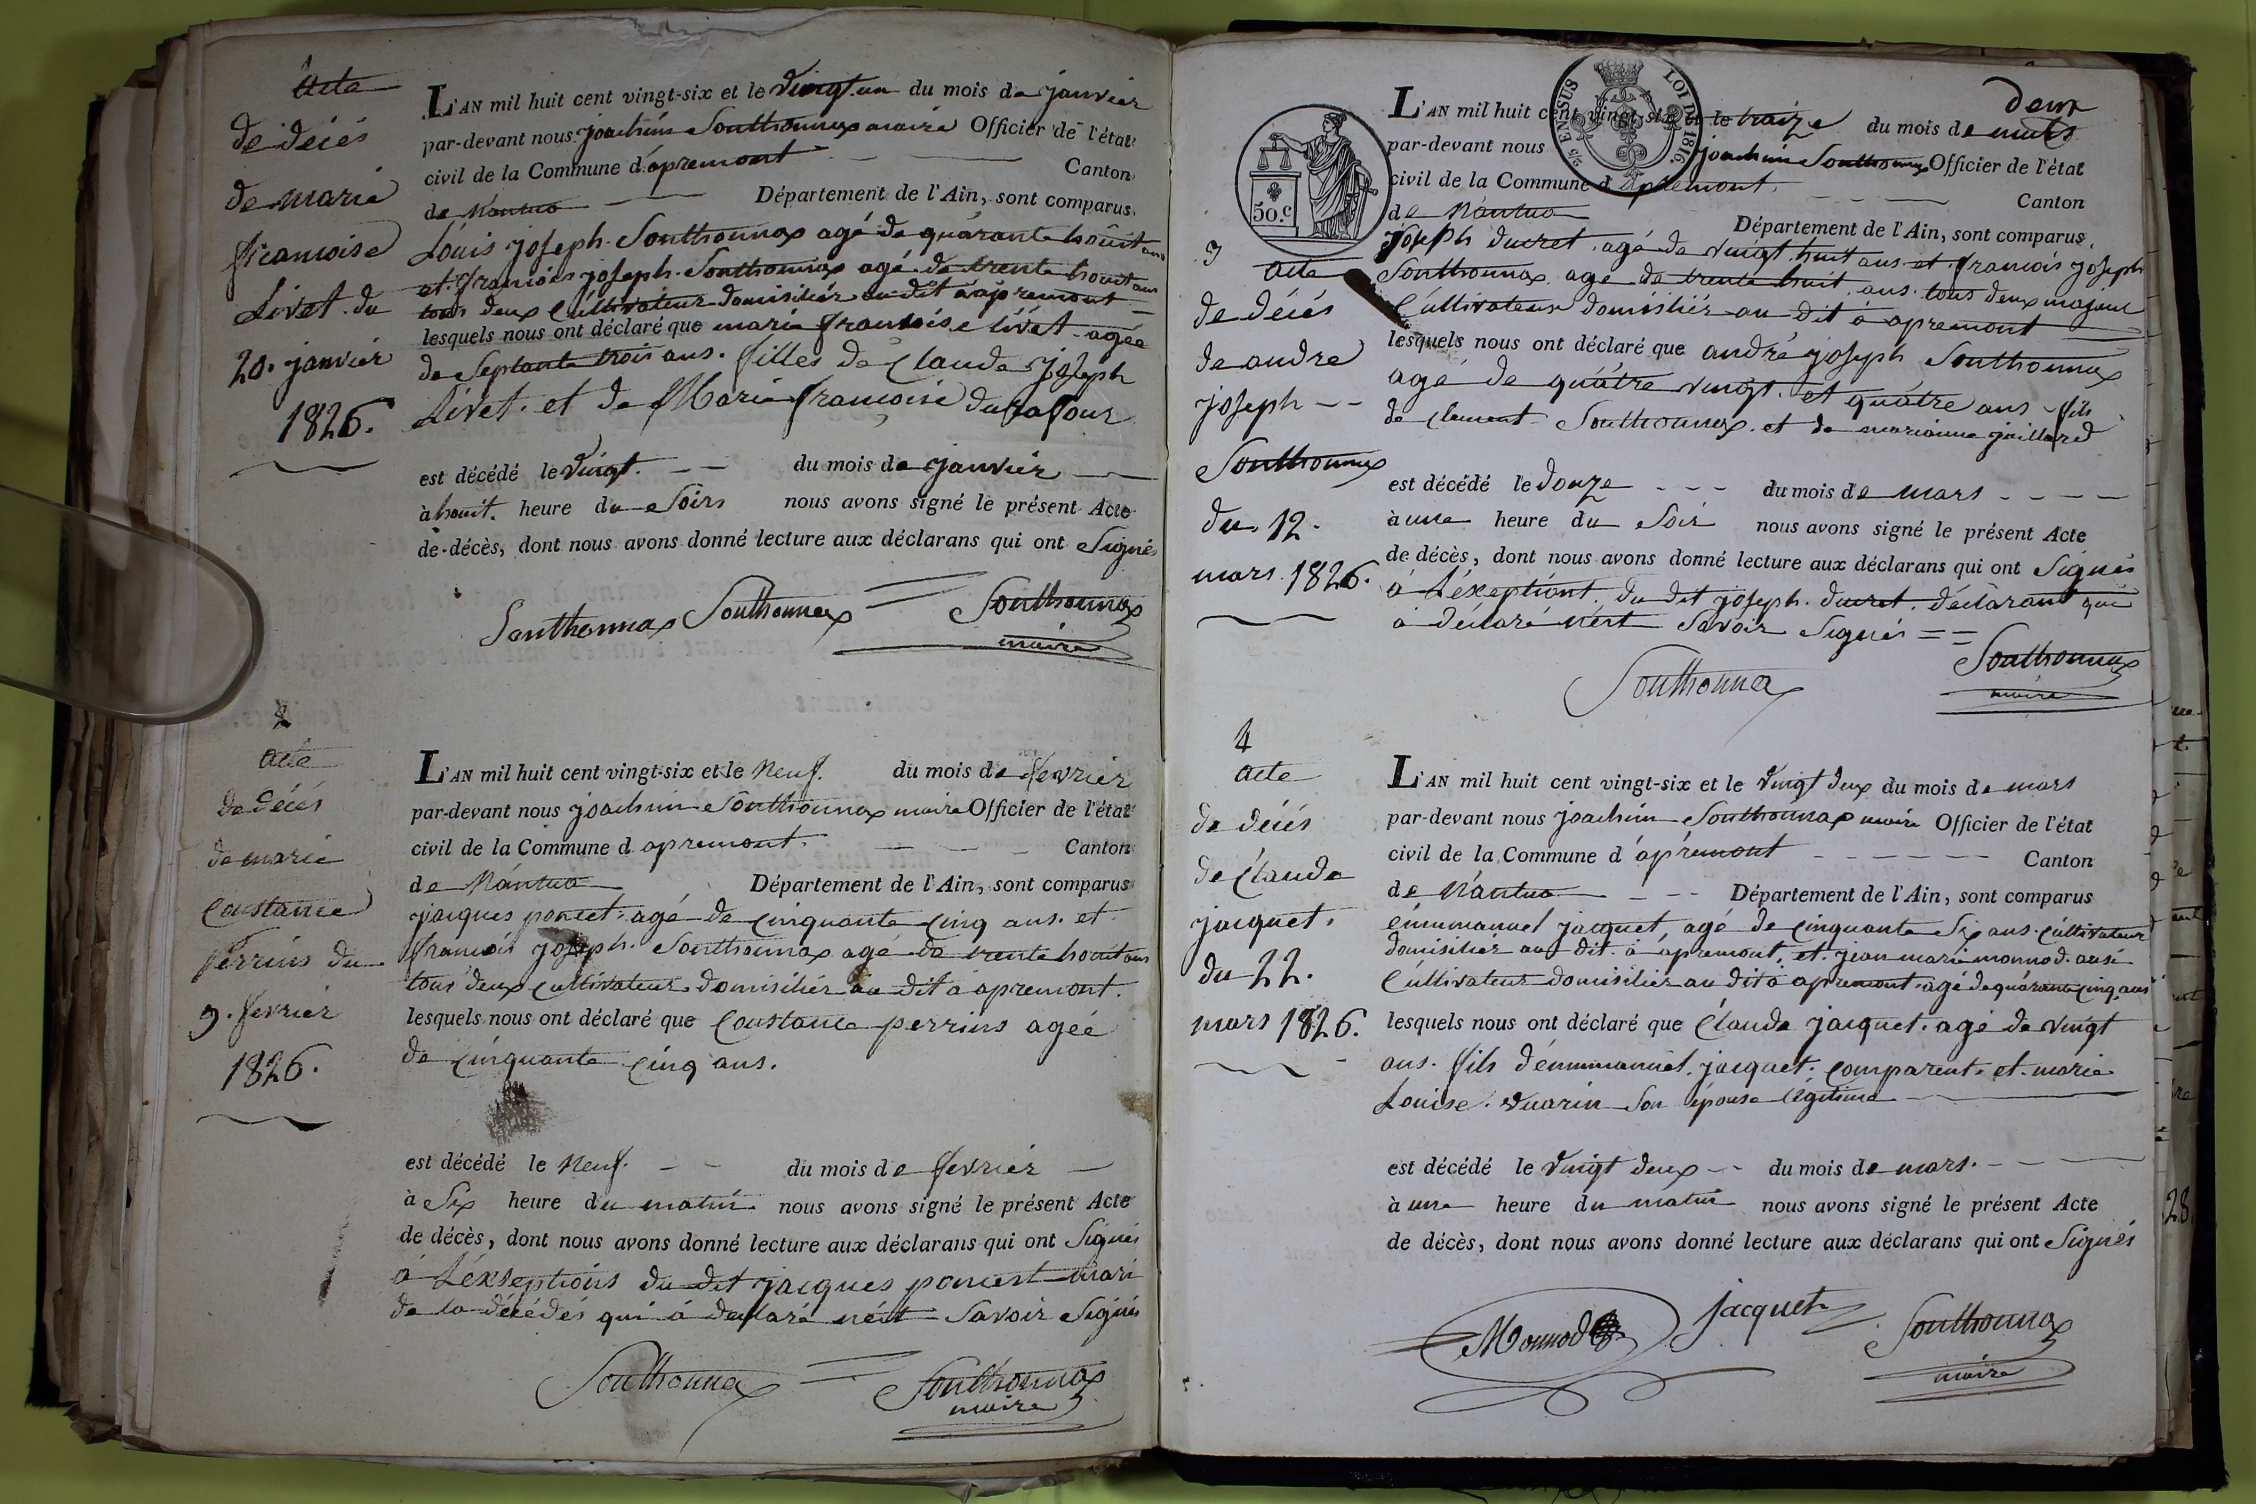 Acte
de décés
de marie
francoise
Livet. du
20. janvier
1826.
L'AN mil huit cent vingt-six et le vingt un du mois de janvier
par-devant nous joachim Sonthonnax maire Officier de l'état
civil de la Commune d'apremont Canton
de Nantua Département de l'Ain, sont comparus
Louis joseph Sonthonnax agé de quárante houit ans
et francois joseph Sonthonnax agé de trente houit ans
tous deux Cultivateur domisiliér au dit á apremont
lesquels nous ont déclaré que marie francoise livet agée
de Septante trois ans. filles de Claude Joseph
Livet. et de Marie francoise dufafour
est décédé le vingt. du mois de janvier
à houit. heure du Soirs nous avons signé le présent Acte
de décès, dont nous avons donné lecture aux déclarans qui ont Signés
Sonthonnax Sonthonnax Sonthonnax
maire
2
acte
de décés
de marie
Constance
perrins du
9. fevrier
1826.
L'AN mil huit cent vingt-six et le Neuf. du mois de fevriér
par-devant nous joachim Sonthonnax maire Officier de l'état
civil de la Commune d apremont. Canton
de Nántua Département de l'Ain, sont comparus
jacques poncet. agé de cinquante cinq ans. et
francois joseph. Sonthonnax agé de trente houit ans
tous deux cultivateur domisiliér au dit á apremont.
lesquels nous ont déclaré que Constance perrins agéé
de cinquante cinq ans.
est décédé le Neuf. du mois de fevriér
à Six heure du matin nous avons signé le présent Acte
de décès, dont nous avons donné lecture aux déclarans qui ont Signés
á Léxseptions du dit jacques poncest mari
de la décédés qui á declaré nést Savoir Signés
Sonthonnax Sonthonnax
maire
deux
L'AN mil huit cent vingt-six et le traize du mois de mars
par-devant nous joachim Sonthonnax Officier de l'état
civil de la Commune d Apremont. Canton
de Nántua Département de l'Ain, sont comparus
50.c
S/s EN SUS
LOI DE 1816.
3
acte
de décés
de andre
joseph
Sonthonnax
du. 12.
mars. 1826.
Joseph ducret. agé de vingt huit ans et francois joseph
Sonthonnax agé de trente huit ans. tous deux majeur
Cultivateur domisiliér au dit á apremont
lesquels nous ont déclaré que andré joseph Sonthonnax
agé de quátre vingt. et quátre ans fils
de Clement Sonthonnax. et de marianne jaillard
est décédé le douze du mois de mars
à une heure du Soir nous avons signé le présent Acte
de décès, dont nous avons donné lecture aux déclarans qui ont Signés
á Léxeptiont. du dit joseph. ducret. déclarant qui
á déclaré nést Savoir Signés
Sonthonnax Sonthonnax
maire
4
acte
de décés
de Claude
jacquet.
du 22.
mars 1826.
L'AN mil huit cent vingt-six et le vingt deux du mois de mars
par-devant nous joachim Sonthonnax maire Officier de l'état
civil de la Commune d'áprémont Canton
de Nántua Département de l'Ain, sont comparus
émmanuel jacquet, agé de cinquante Six ans. cultivateur
domisiliér au dit. á ápremont, et. jean marie monnod. ausi
Cultivateur domisiliér au dit á apremont. agé de quárante cinq ans
lesquels nous ont déclaré que Claude jacquet. agé de vingt
ans. fils démmanuel. jacquet. comparent. et. marie
Louise. vuarin son épouse légitime
est décédé le vingt deux du mois de mars.
à une heure du matin nous avons signé le présent Acte
de décès, dont nous avons donné lecture aux déclarans qui ont Signés
Monnod jacquet Sonthonnax
maire
28